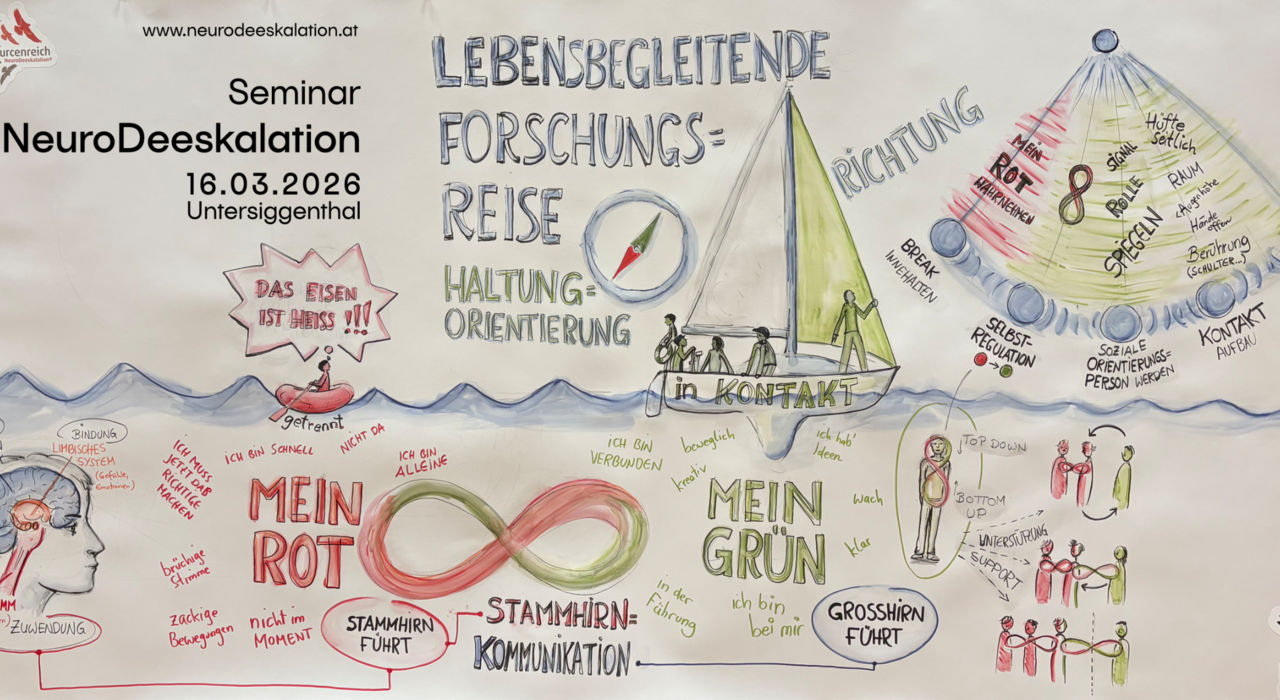 www.neurodeeskalation.at
Seminar
NeuroDeeskalation
16.03.2026
Untersiggenthal
urcenreich
NeuroDeeskalation®
LEBENSBEGLEITENDE
FORSCHUNGS=
REISE
HALTUNG=
ORIENTIERUNG
RICHTUNG
DAS EISEN
IST HEISS !!!
getrennt
in KONTAKT
MEIN
ROT
WAHRNEHMEN
SIGNAL
ROLLE
SPIEGELN
Hüfte
seitlich
RAUM
Augenhöhe
Hände
offen
Berührung
(SCHULTER...)
BREAK
INNEHALTEN
SELBST-
REGULATION
SOZIALE
ORIENTIERUNGS=
PERSON WERDEN
KONTAKT
AUFBAU
BINDUNG
LIMBISCHES
SYSTEM
(Gefühle,
Emotionen)
ZUWENDUNG
ICH MUSS
JETZT DAS
RICHTIGE
MACHEN
ICH BIN SCHNELL
NICHT DA
ICH BIN
ALLEINE
MEIN
ROT
brüchige
Stimme
zackige
Bewegungen
nicht im
MOMENT
STAMMHIRN
FÜHRT
STAMMHIRN=
KOMMUNIKATION
ICH BIN
VERBUNDEN
beweglich
kreativ
ich hab'
Ideen
MEIN
GRÜN
wach
klar
in der
Führung
ich bin
bei mir
GROSSHIRN
FÜHRT
TOP DOWN
BOTTOM
UP
UNTERSTÜTZUNG
SUPPORT